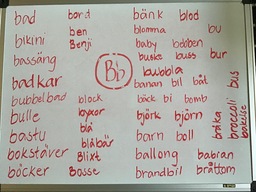 bad
bikini
bassäng
badkar
bubbelbad
bulle
bastu
bokstäver
böcker
bord
ben
Benji
block
byxor
blå
blåbär
Blixt
Bosse
Bb
bänk blod
blomma bu
baby bobben
buske buss bur
bubbla
banan bil båt
bock bi bomb
björk björn
barn boll
ballong babian
brandbil bråttom
bus
broccoli
bråka